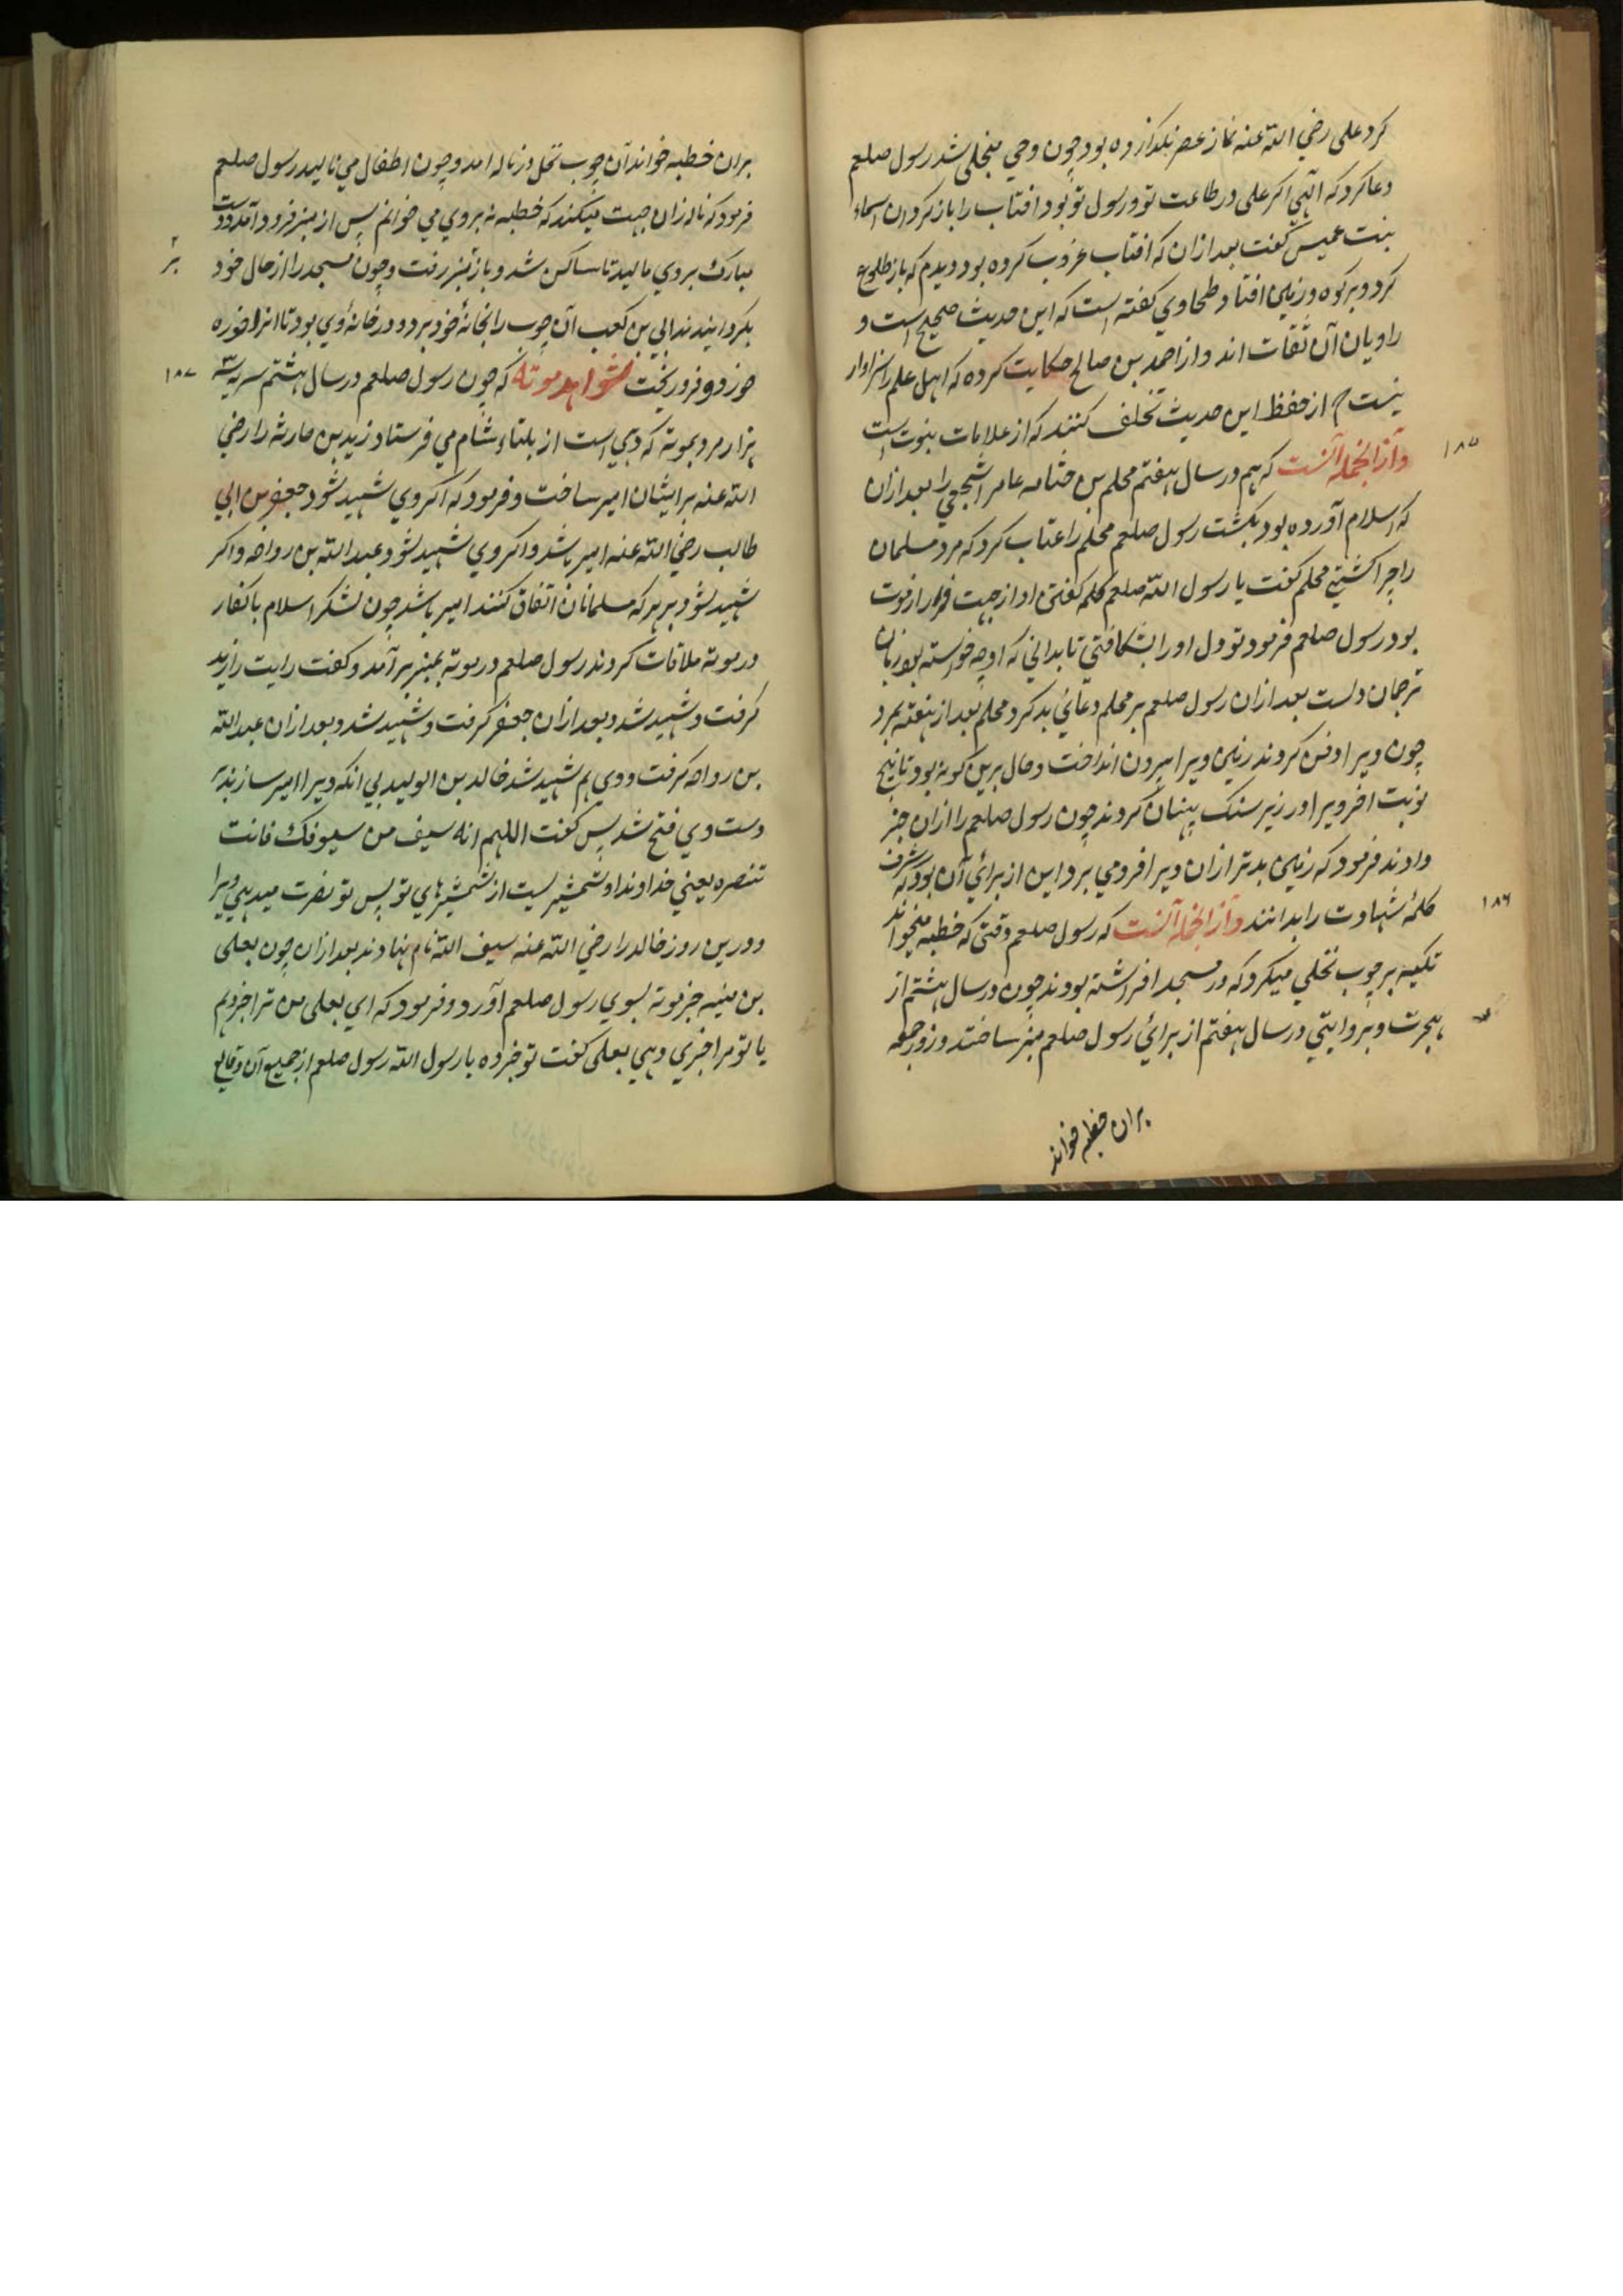 کرد علی رضي الله عنه نماز عصر نکذارده بود چون وحي منجلي شد رسول صلعم
دعا کرد که الهي اکر علی در طاعت تو و رسول تو بود افتاب را باز کردان اسماء
بنت عمیس کفت بعد ازان که افتاب غروب کرده بود دیدم که باز طلوع
کرد و بر کوه و زمین افتاد طحاوي کفته است که این حدیث صحیح است و
راویان آن ثقات اند و از احمد بن صالح حکایت کرده که اهل علم را سزاوار
نیست که از حفظ این حدیث تخلف کنند که از علامات نبوت است
۱۸۵
وازانجمله آنست که هم در سال هفتم محلم بن جثامه عامر اشجعي را بعد ازان
که اسلام آورده بود بکشت رسول صلعم محلم را عتاب کرد که مرد مسلمان
را چرا کشتي محلم کفت یا رسول الله صلعم کلمه کفتن او از جهت فرار از موت
بود رسول صلعم فرمود تو دل او را بشکافتي تا بداني که او چه خواسته بود زبان
ترجمان دلست بعد ازان رسول صلعم بر محلم دعائي بد کرد محلم بعد از هفته بمرد
چون ویرا دفن کردند زمین ویرا بیرون انداخت و حال برین کونه بود تا پنج
نوبت اخر ویرا در زیر سنک پنهان کردند چون رسول صلعم را ازان خبر
دادند فرمود که زمین بدتر ازان ویرا فرو مي برد این از برائي آن بود که شرف
۱۸۶
کلمهٔ شهادت را بدانند وازانجمله آنست که رسول صلعم وقتي که خطبه میخواند
تکیه بر چوب نخلي میکرد که در مسجد افراشته بودند چون در سال هشتم از
هجرت و بروایتي در سال هفتم از برائي رسول صلعم منبر ساختند و روز جمعه
بران خطبه خواند
بران خطبه خواند آن چوب نخل در ناله امد و چون اطفال مي نالید رسول صلعم
فرمود که ناله زان جهت میکند که خطبه نه بروي مي خوانم پس از منبر فرود آمد و دست
مبارک بروي مالید تا ساکن شد و باز بمنبر رفت و چون مسجد را از حال خود
بکردانیدند ابي بن کعب آن چوب را بخانهٔ خود برد و در خانهٔ وي بود تا انرا خوره
۱۸۷
خورد و فرو ریخت شواهد موته که چون رسول صلعم در سال هشتم سریه سه
هزار مرد بموته که دهي است از بلقاء شام مي فرستاد زید بن حارثه را رضي
الله عنه برایشان امیر ساخت و فرمود که اکر وي شهید شود جعفر بن ابي
طالب رضي الله عنه امیر باشد و اکر وي شهید شود عبد الله بن رواحه و اکر
شهید شود بر هر که مسلمانان اتفاق کنند امیر باشد چون لشکر اسلام با کفار
در موته ملاقات کردند رسول صلعم در موته بمنبر بر آمد و کفت رایت را زید
کرفت و شهید شد و بعد ازان جعفر کرفت و شهید شد و بعد ازان عبد الله
بن رواحه کرفت و وي هم شهید شد خالد بن الولید بي انکه ویرا امیر سازند بر
دست وي فتح شد پس کفت اللهم انه سیف من سیوفک فانت
تنصره یعني خداوندا او شمشیریست از شمشیرهاي تو پس تو نصرت میدهي ویرا
و درین روز خالد را رضي الله عنه سیف الله نام نهادند بعد ازان چون یعلی
بن منیه خبر موته بسوي رسول صلعم آورد و فرمود که اي یعلی من ترا خبر دهم
یا تو مرا خبري دهي یعلی کفت تو خبر ده یا رسول الله رسول صلعم از جمیع آن وقایع